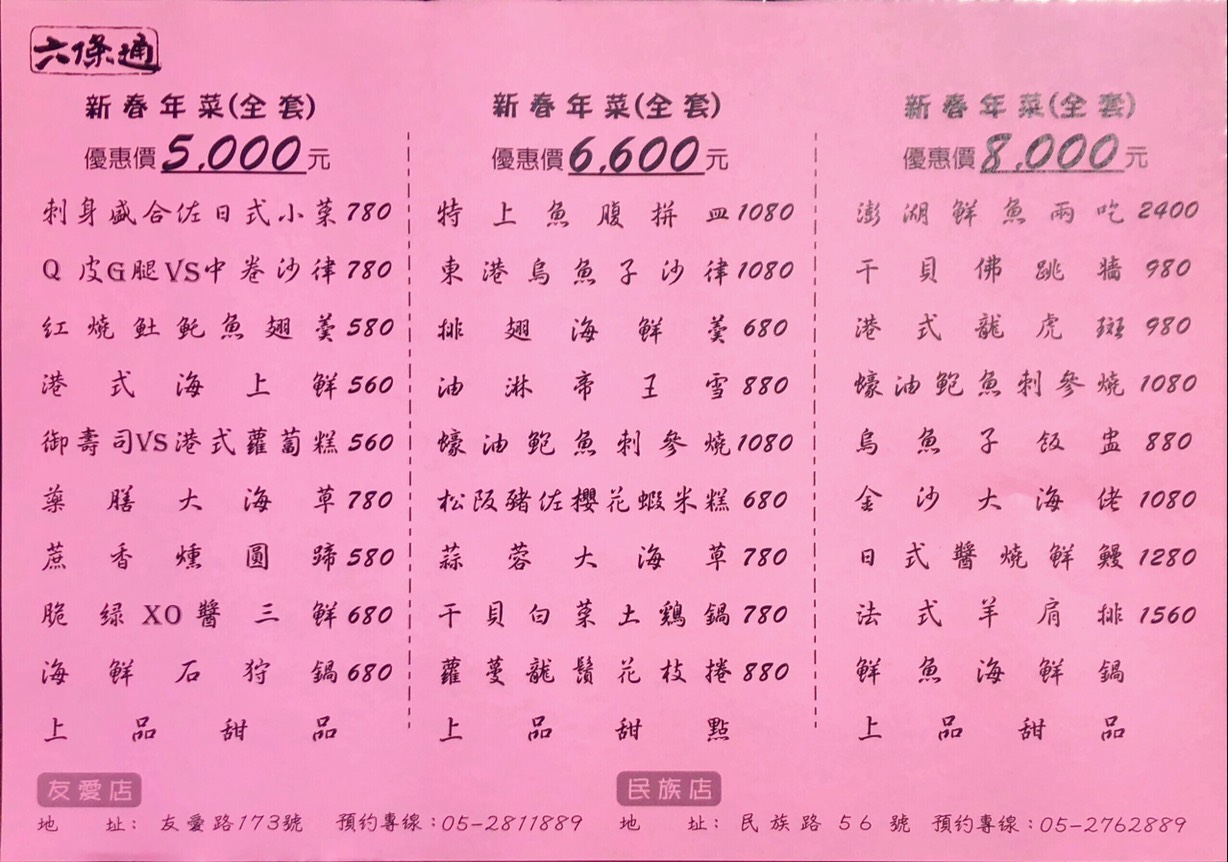 六條通
新春年菜(全套)
優惠價5,000元
刺身盛合佐日式小菜780
Q皮G腿VS中卷沙律780
紅燒魠魠魚翅羹580
港式海上鮮560
御壽司VS港式蘿蔔糕560
藥膳大海草780
蔗香燻圓蹄580
脆绿XO醬三鮮680
海鮮石狩鍋680
上品甜品
新春年菜(全套)
優惠價6,600元
特上魚腹拼皿1080
東港烏魚子沙律1080
排翅海鮮羹680
油淋帝王雪880
蠔油鮑魚刺參燒1080
松阪豬佐櫻花蝦米糕680
蒜蓉大海草780
干貝白菜土鷄鍋780
蘿蔓龍鬚花枝捲880
上品甜點
新春年菜(全套)
優惠價8,000元
澎湖鮮魚兩吃2400
干貝佛跳牆980
港式龍虎斑980
蠔油鮑魚刺參燒1080
烏魚子飯盅880
金沙大海佬1080
日式醬燒鮮鰻1280
法式羊肩排1560
鮮魚海鮮鍋
上品甜品
友愛店
地址：友愛路173號 預約專線：05-2811889
民族店
地址：民族路56號 預約專線：05-2762889